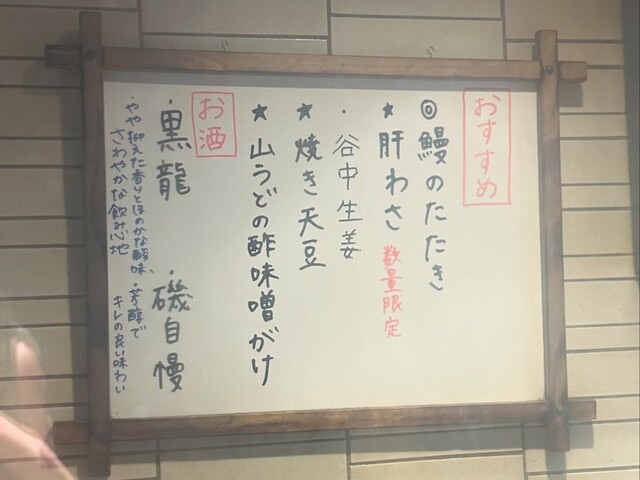 おすすめ
◎鰻のたたき
★肝わさ 数量限定
・谷中生姜
★焼き天豆
★山うどの酢味噌がけ
お酒
・黒龍
・やや抑えた香りとほのかな酸味、
さわやかな飲み心地
・磯自慢
・芳醇で
キレの良い味わい